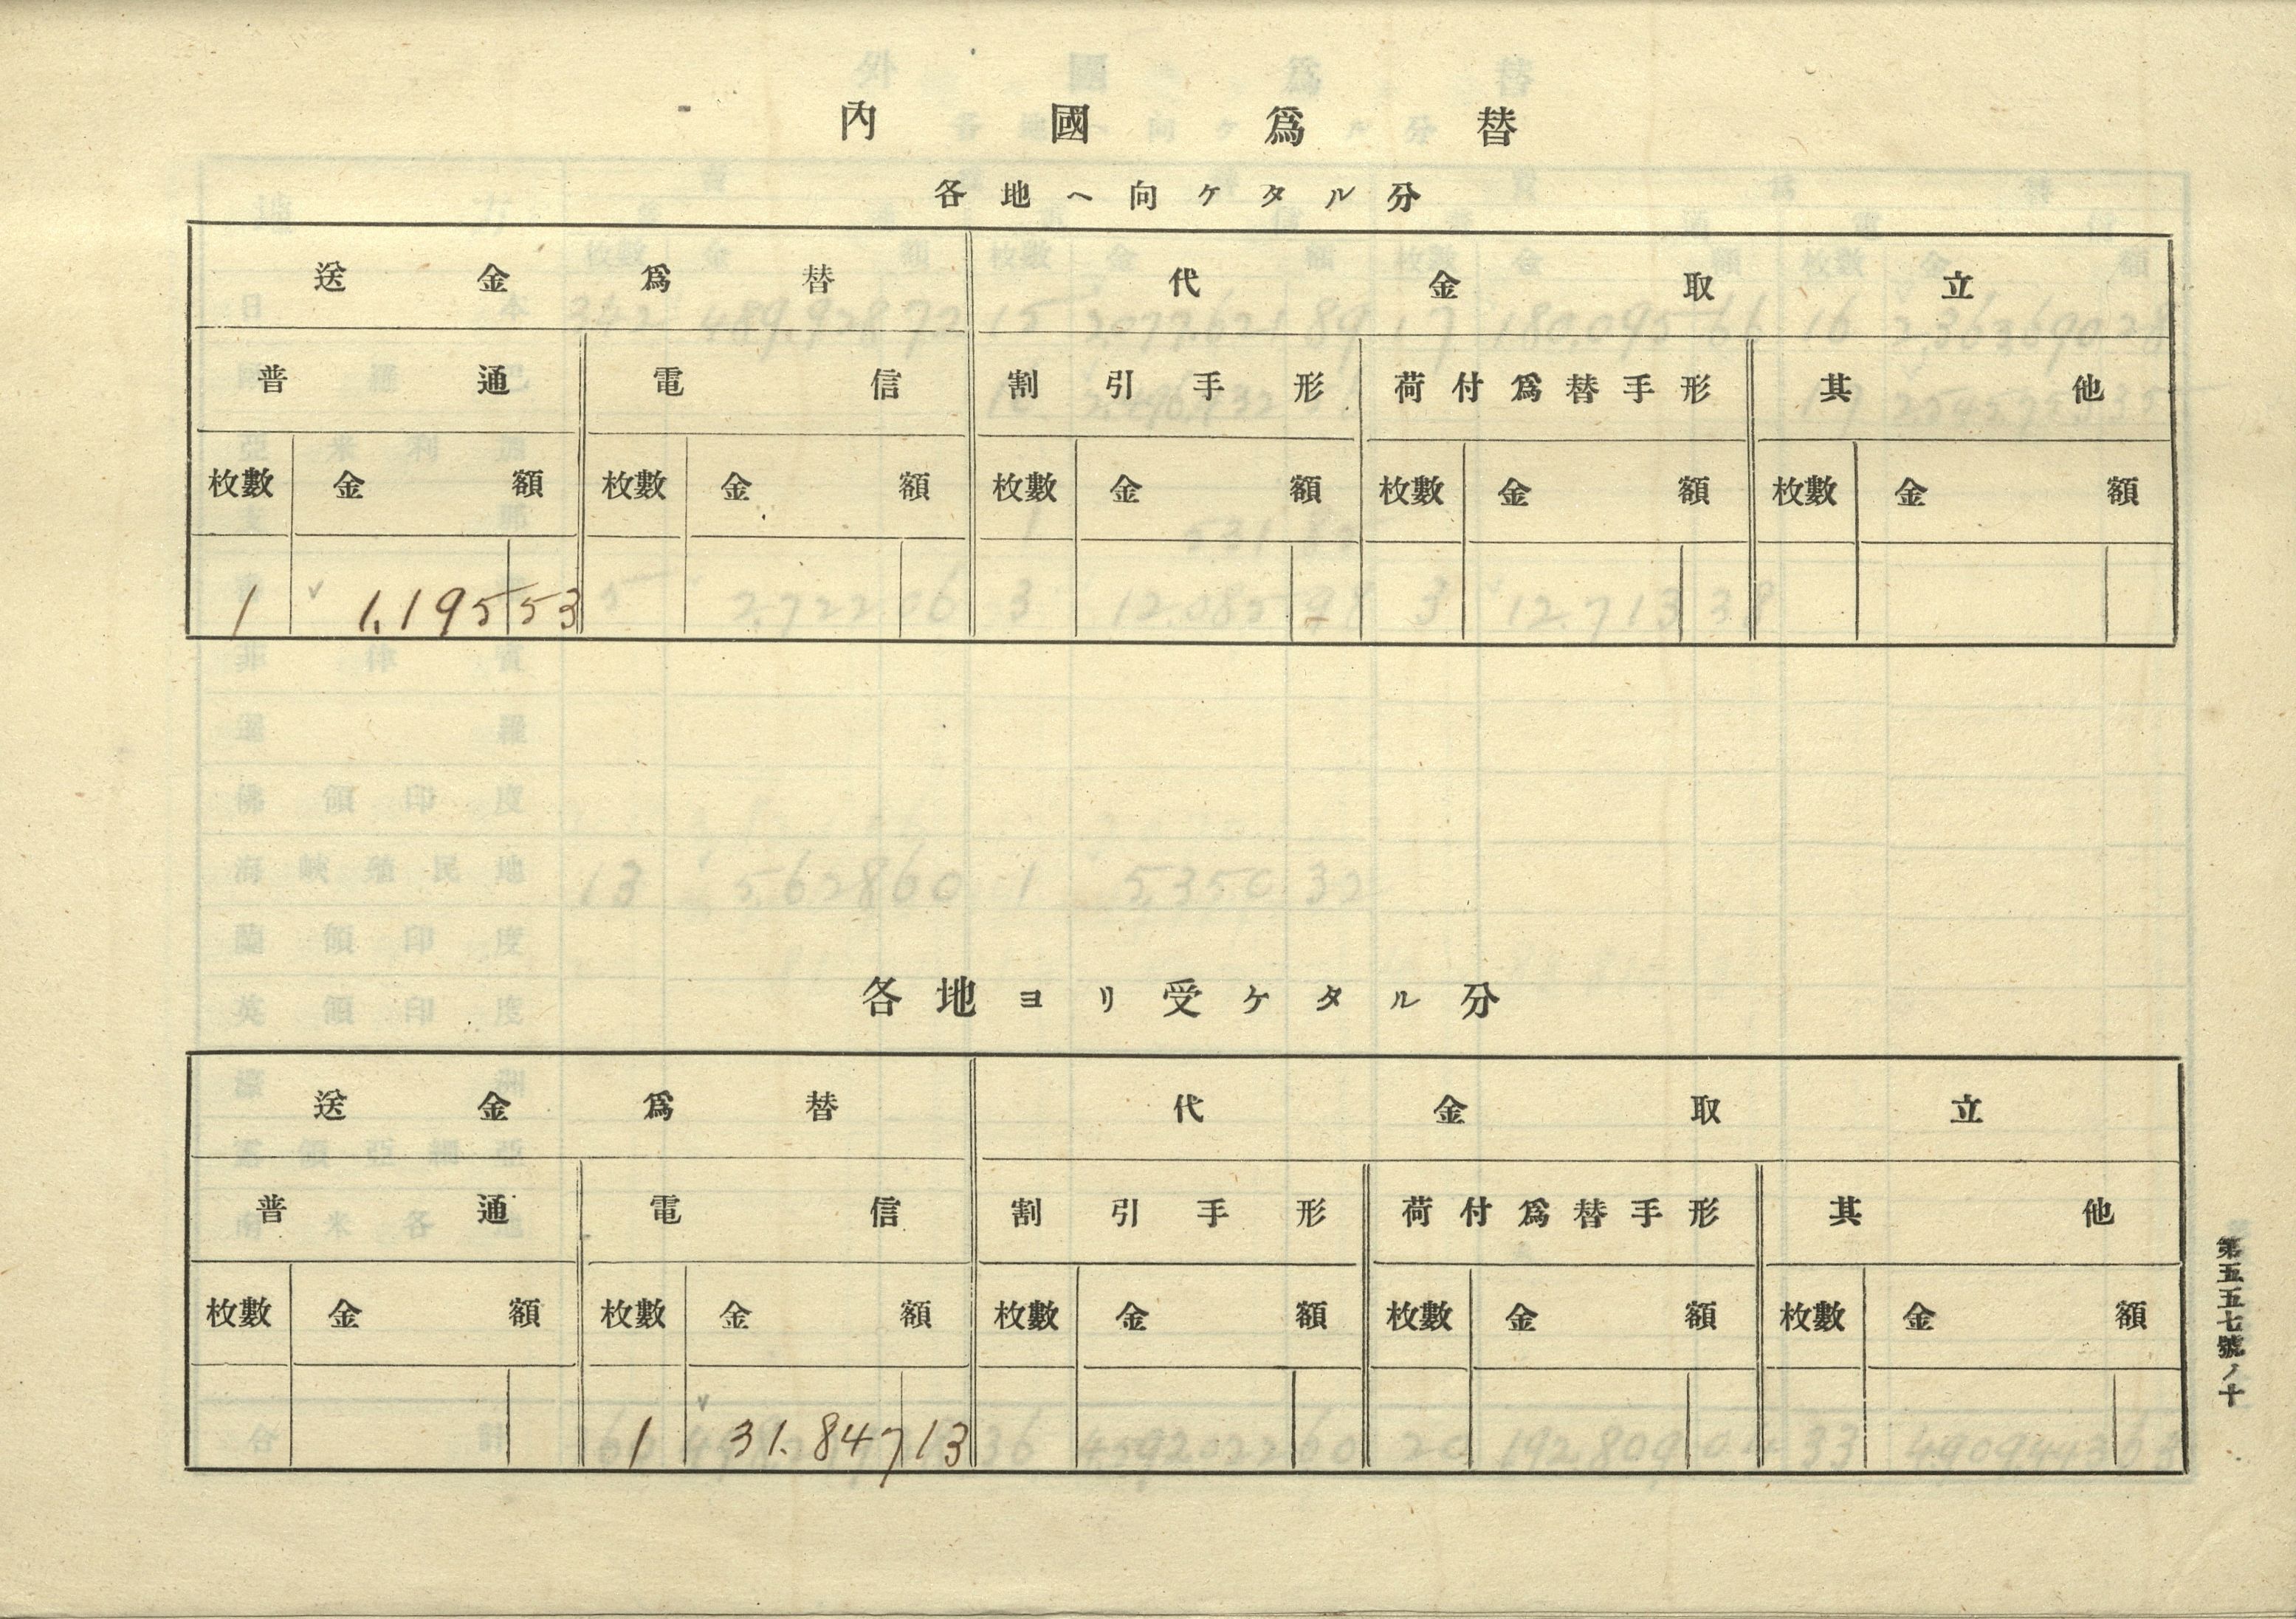 內國爲替
各地ヘ向ケタル分
送金爲替 代金取立
普通 電信 割引手形 荷付爲替手形 其他
枚數 金額 枚數 金額 枚數 金額 枚數 金額 枚數 金額
1 1,195 53
各地ヨリ受ケタル分
送金爲替 代金取立
普通 電信 割引手形 荷付爲替手形 其他
枚數 金額 枚數 金額 枚數 金額 枚數 金額 枚數 金額
1 31.847 13
第五五七號ノ十